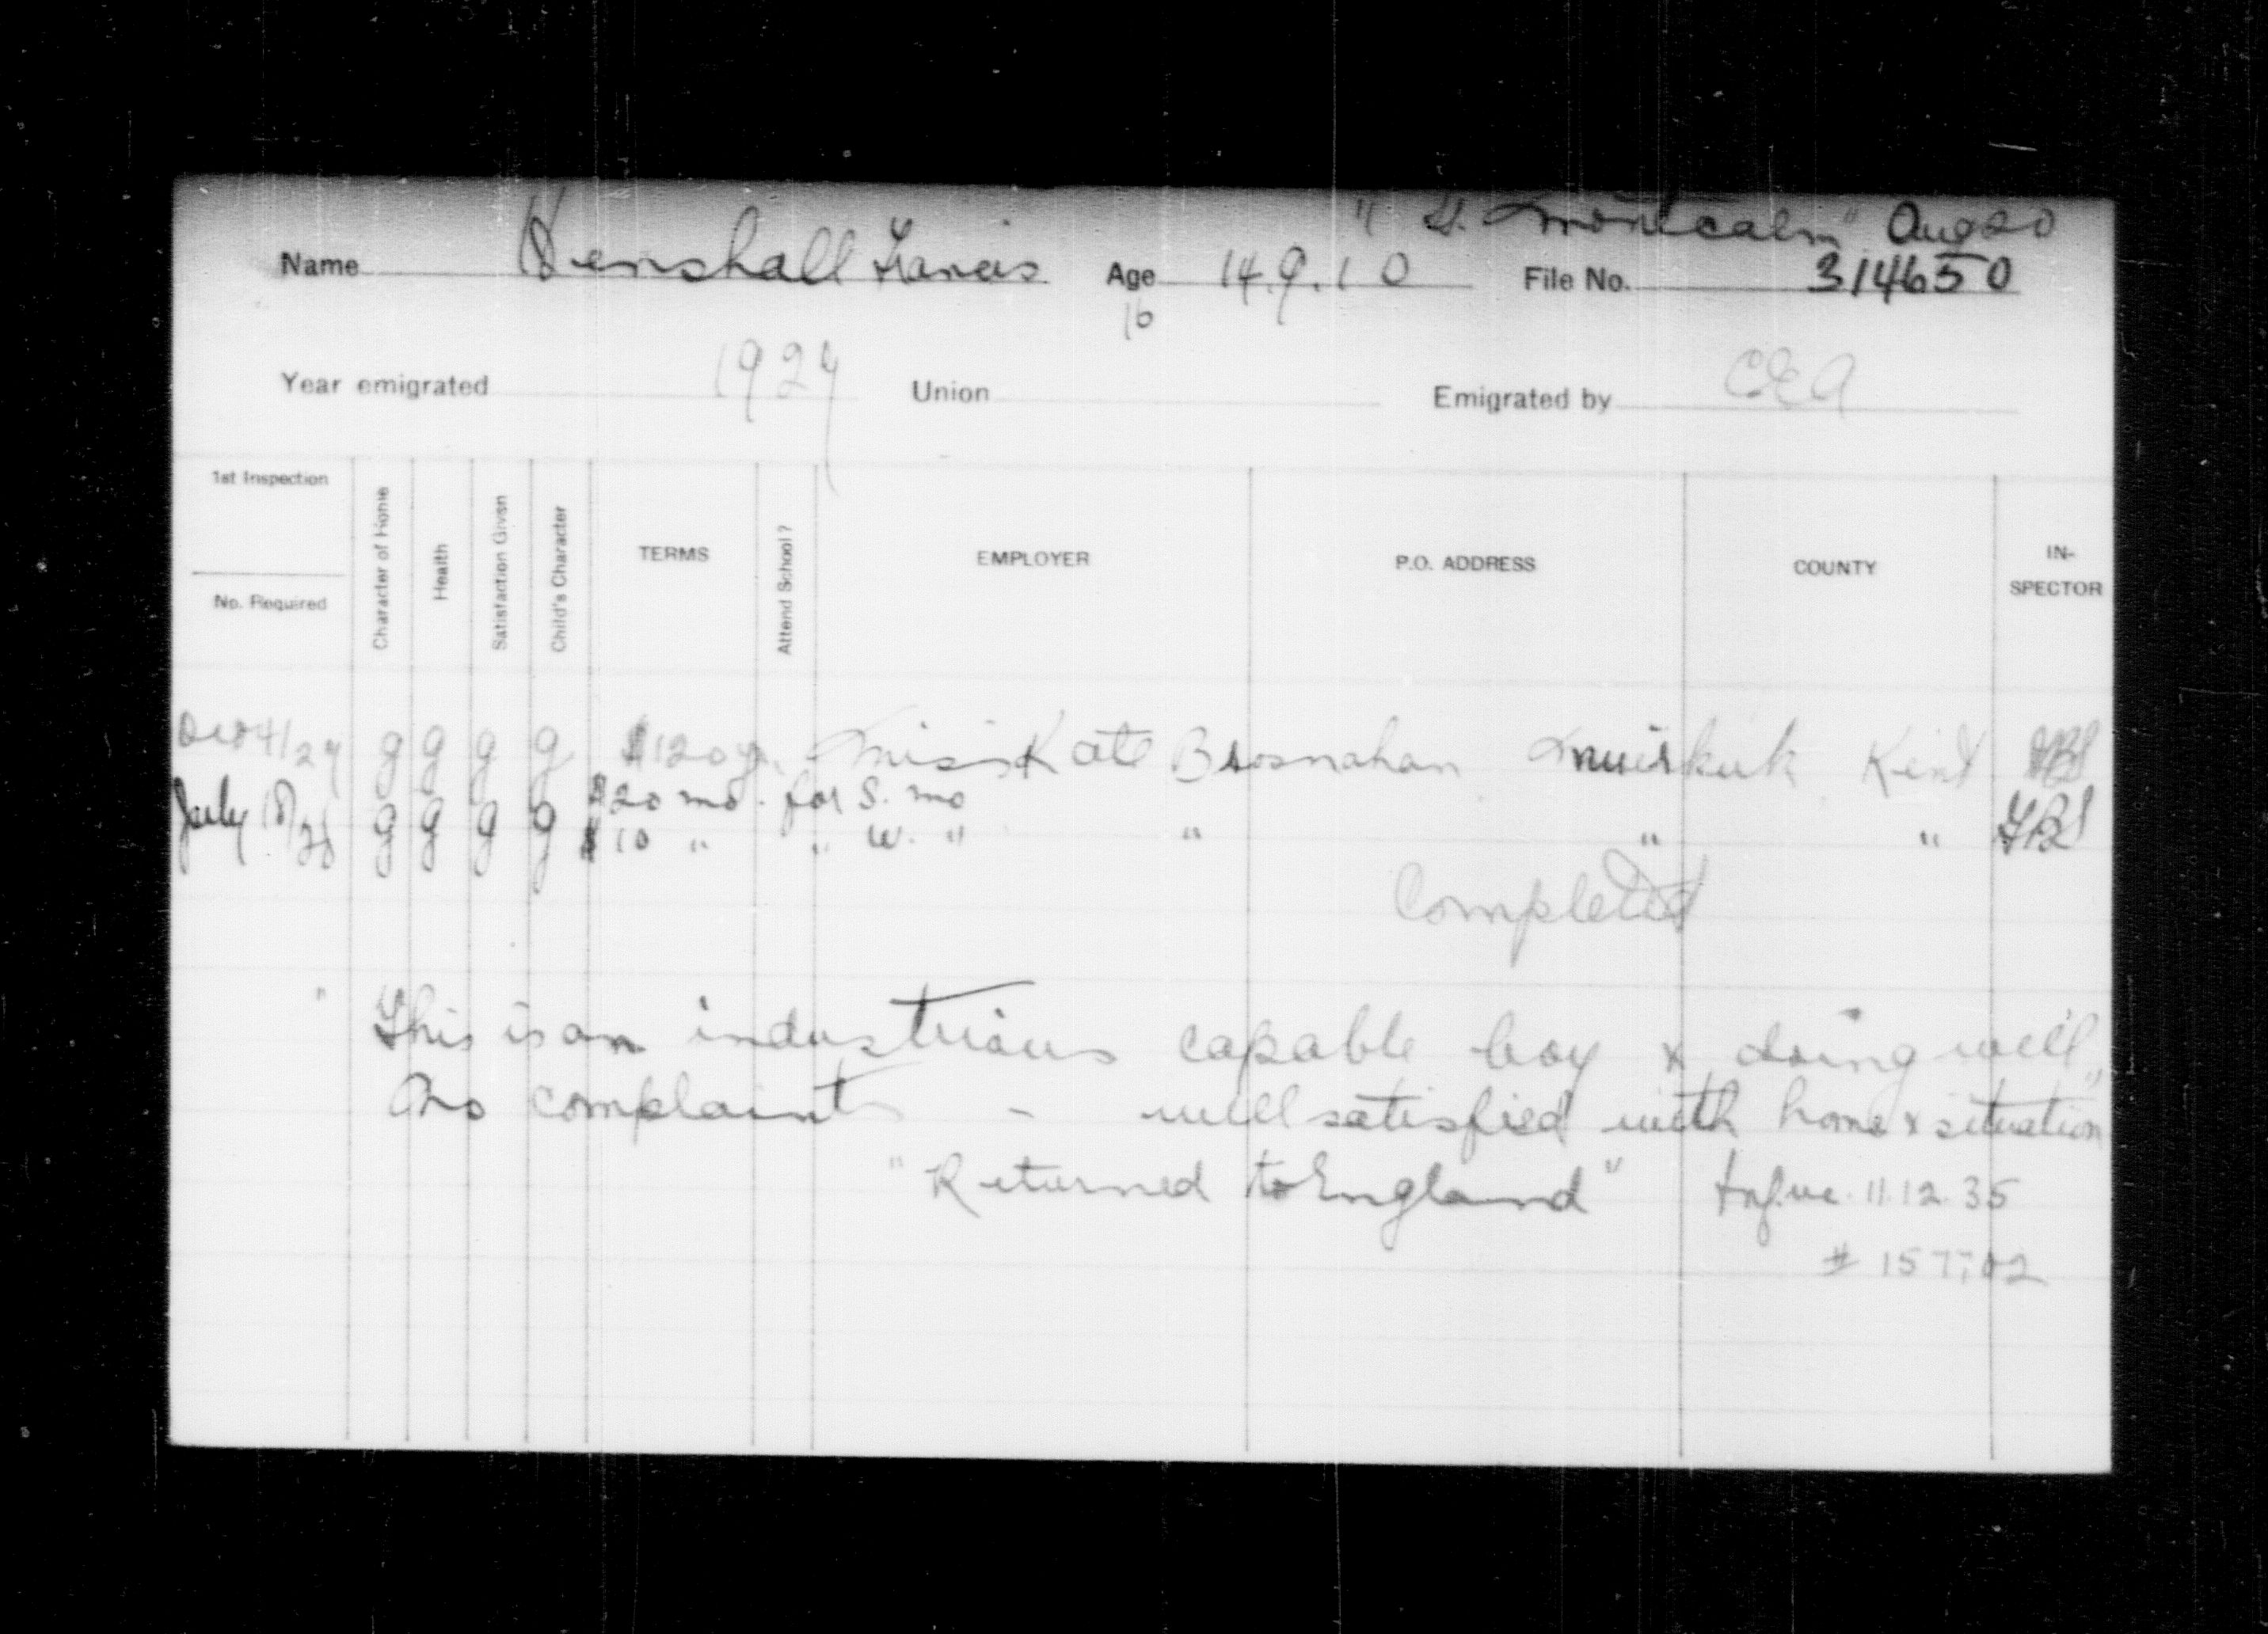 " St. Montcalm" Aug 20
Name Henshall Francis Age 14.9.10 File No. 314650
16
Year emigrated 1927 Union Emigrated by CEA
1st Inspection
No. Required
Character of Home
Health
Satisfaction Given
Child's Character
TERMS
Attend School?
EMPLOYER
P.O. ADDRESS
COUNTY
IN-
SPECTOR
4/27 g g g g $120 yr. Miss Kate Brosnahan Muirkirk Kent
$20 mo. for S. mo
July 18/28 g g g g $10 " " W. " " " "
Completed
" This is an industrious capable boy & doing well"
No complaints - well satisfied with home & situation
"Returned to England" 11.12.35
# 157702